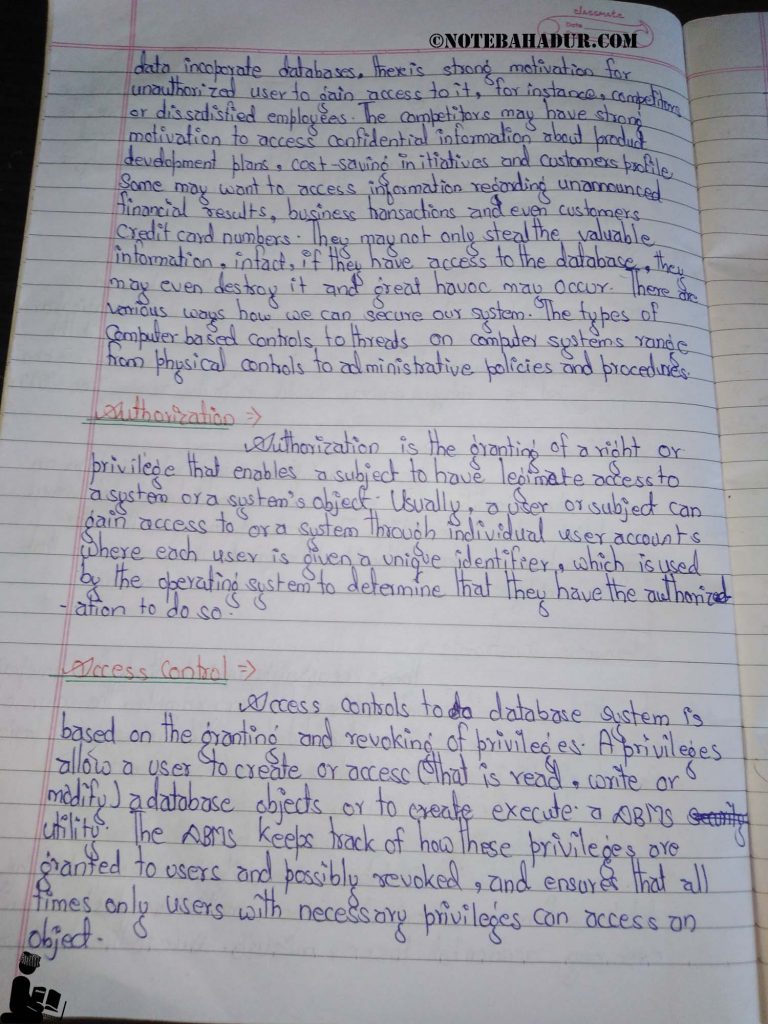 classmate
Date
©NOTEBAHADUR.COM
data incoperate databases, there is strong motivation for
unauthorized user to gain access to it, for instance, competitors
or dissatisfied employees. The competitors may have strong
motivation to access confidential information about product
development plans, cost-saving initiatives and customers profile
Some may want to access information regarding unannounced
financial results, business transactions and even customers
credit card numbers. They may not only steal the valuable
information, infact, if they have access to the database, they
may even destroy it and great havoc may occur. There are
various ways how we can secure our system. The types of
computer based controls to threads on computer systems range
from physical controls to administrative policies and procedures.
Authorization ⇒
Authorization is the granting of a right or
privilege that enables a subject to have legimate access to
a system or a system's object. Usually, a user or subject can
gain access to or a system through individual user accounts
where each user is given a unique identifier, which is used
by the operating system to determine that they have the authoriz
-ation to do so.
Access Control ⇒
Access controls to database system is
based on the granting and revoking of privileges. A privileges
allow a user to create or access (that is read, write or
modify) a database objects or to create execute a DBMS
utility. The DBMS keeps track of how these privileges are
granted to users and possibly revoked, and ensures that all
times only users with necessary privileges can access an
object.